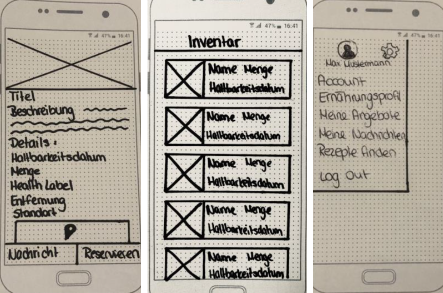 47% 16:41
Titel
Beschreibung
Details:
Haltbarkeitsdatum
Menge
Health Label
Entfernung
Standort
Nachricht Reservieren
47% 16:41
Inventar
Name Menge
Haltbarkeitsdatum
Name Menge
Haltbarkeitsdatum
Name Menge
Haltbarkeitsdatum
Name Menge
Haltbarkeitsdatum
Name Menge
Haltbarkeitsdatum
47% 16:41
Max Mustermann
Account
Ernährungsprofil
Meine Angebote
Meine Nachrichten
Rezepte finden
Log Out